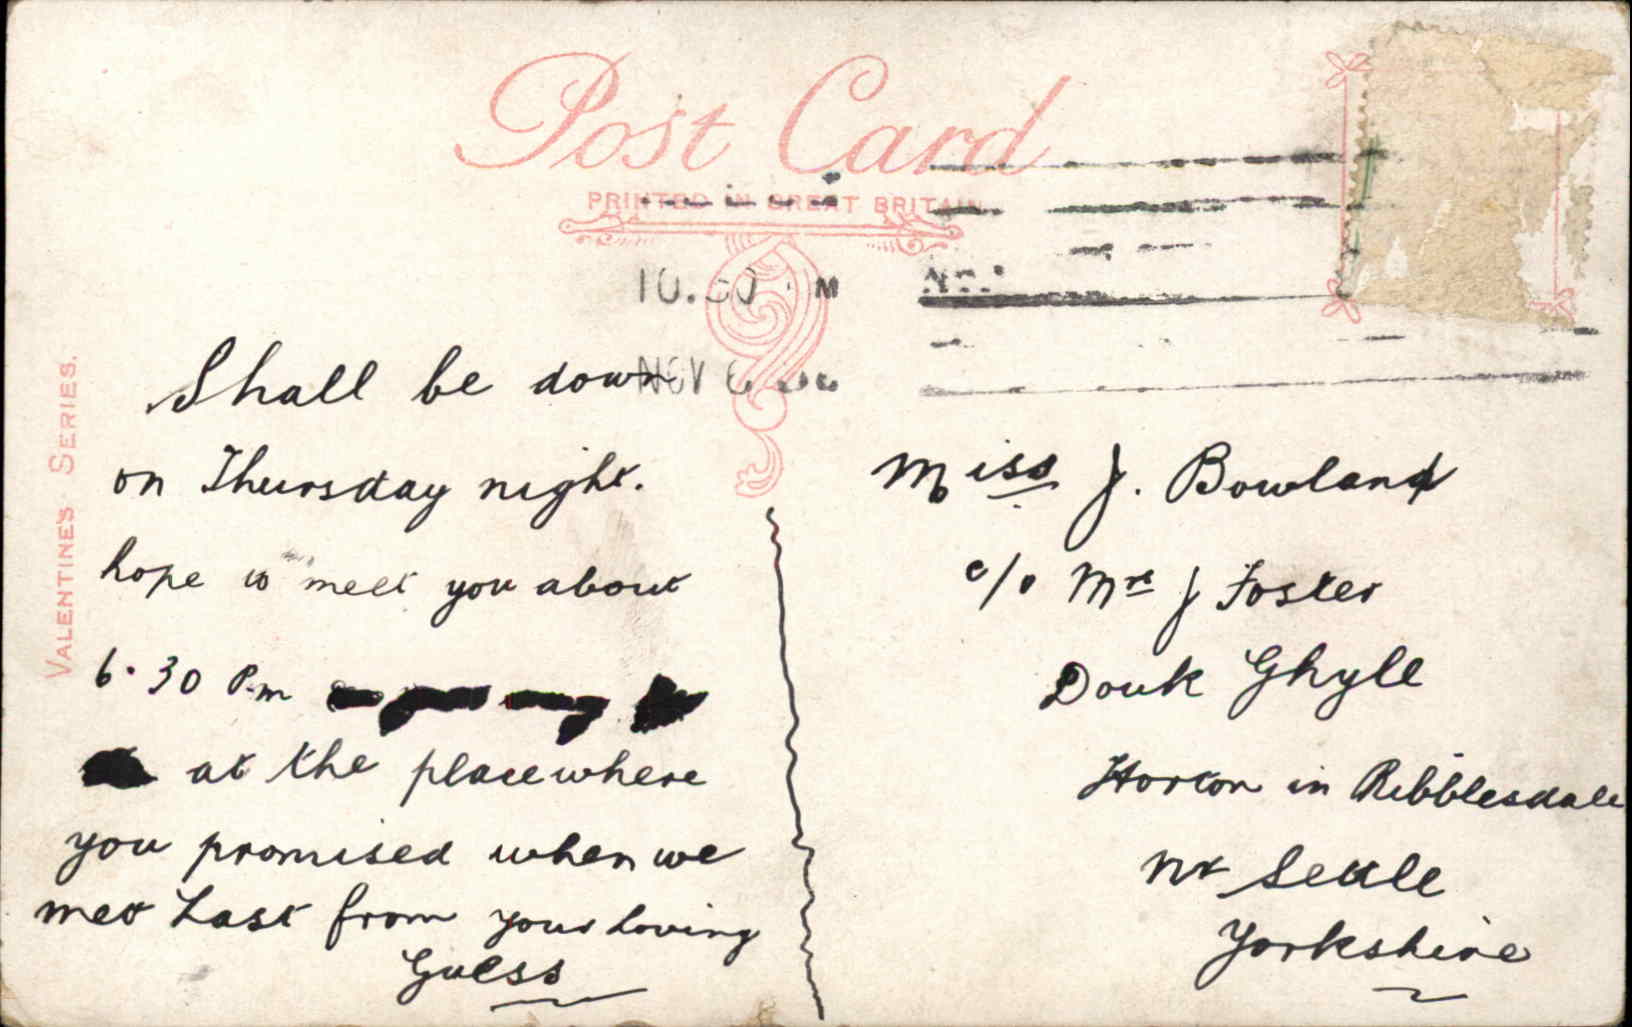 Post Card
PRINTED IN GREAT BRITAIN
VALENTINE'S SERIES.
10.30 M
NOV 6
Shall be down
on Thursday night.
hope to meet you about
6.30 P.m
at the place where
you promised when we
met Last from your loving
Guess
Miss J. Bowland
c/o Mrs J Foster
Douk Ghyll
Horton in Ribblesdale
Nr Settle
Yorkshire